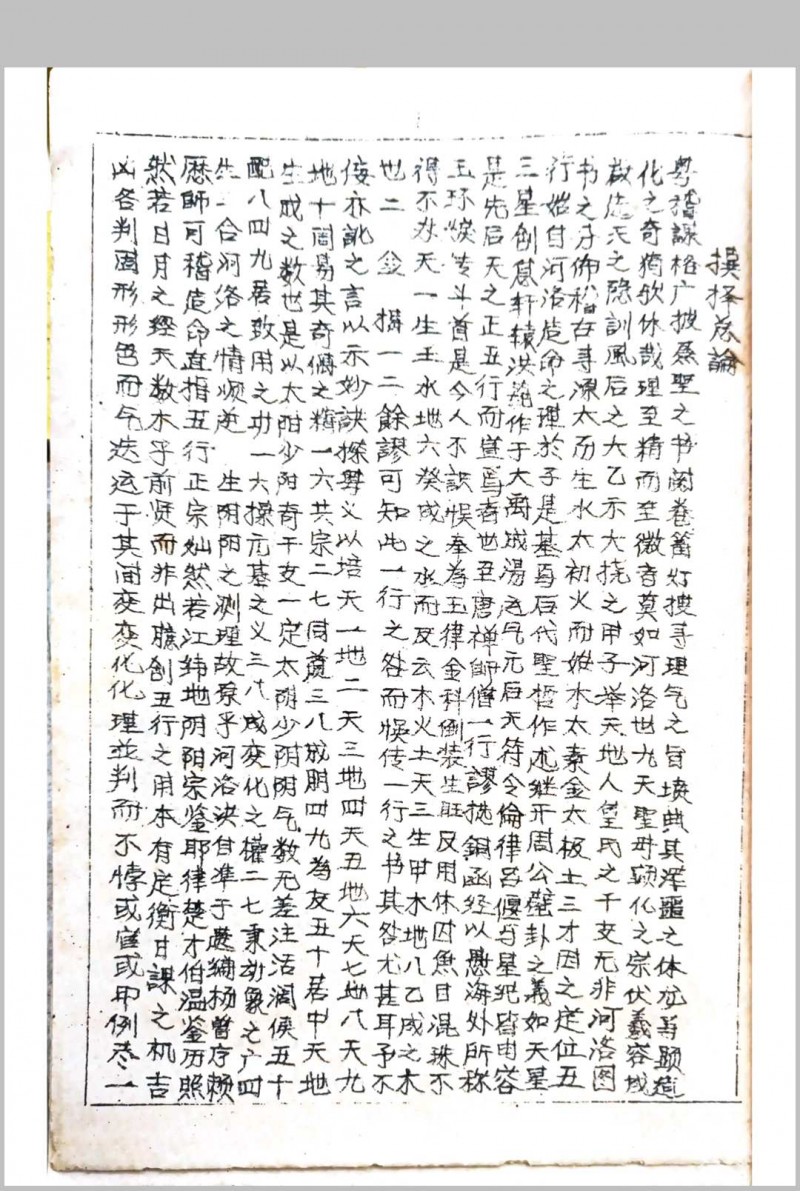 撰择总論
粤稽謀格广披為聖之书阅卷篝灯搜寻理气之旨墳典其渾噩之体並等顕造
化之奇猶欤休哉理至精而至微者莫如河洛也九天聖母顕化之宗伏羲容成
啟先天之隐訓風后之大乙示大挠之甲子举天地人皇氏之干支无非河洛图
书之子佈稽在寻源太而生水太初火而始木太素金太极土三才因之定位五
行始自河洛造命之理於子是基焉后代聖哲作述継开周公璧卦之義如天星
三星创意轩辕洪範作于大禹成湯运气元后天符令倫律吕偃与星纪皆由容
是先后天之正五行而豈焉者也至唐禅師僧一行謬挑銅函经以愚海外所称
玉环燧黄斗首是今人不识悞奉為玉律金科倒装生旺反用休囚魚目混珠不
得不然天一生壬水地六癸成之水而反云木火土天三生甲木地八乙成之木
也二金摘一二餘謬可知此一行之咎而悞传一行之书其咎尤甚耳予不
佞亦訛之言以示妙訣探尋义以培天一地二天三地四天五地六天七地八天九
地十周易其奇偶之精一六共宗二七同道三八成朋四九為友五十居中天地
生成之数也是以太阳少阳奇干支一定太阴少阴阴气数无差注活阔俟五十
配八四九居致用之功一六操元基之义三八成变化之權二七秉动象之广四
生一合河洛之情顺逆生阴阳之測理故原乎河洛決自準于農编杨曾序赖
歷師可稽造命直指五行正宗灿然若江纬地阴阳宗鉴耶律楚才伯温鉴历照
然若日月之经天数本乎前贤而非出臆创五行之用本有定衡甘課之机吉
凶各判固形形色而气迭运于其间变变化化理並判而不悖或官或印例尽一